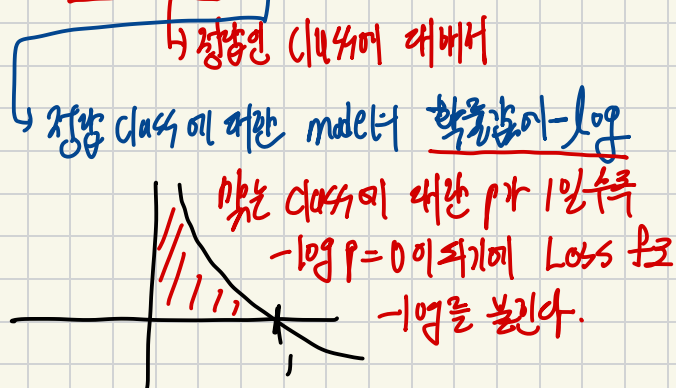 ↳ 정답인 class에 대해서
↳ 정답 class에 대한 model의 확률값에 -log
맞는 class에 대한 p가 1일수록
-log p = 0이 되기에 Loss f로
-log를 붙인다.
1